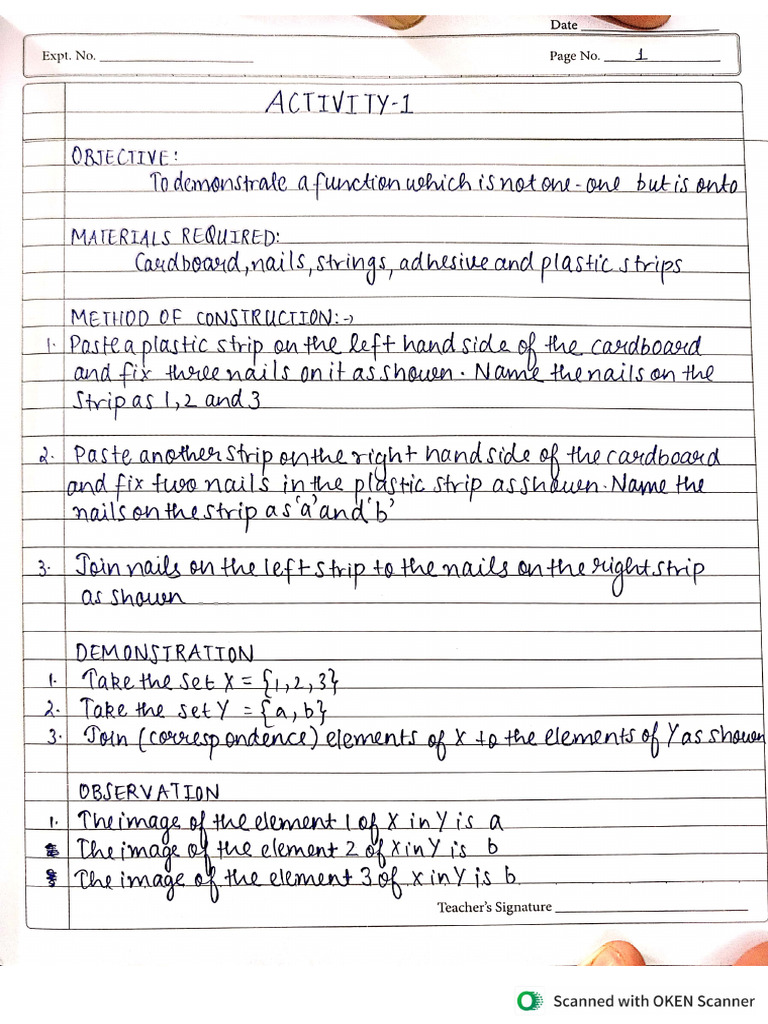 Date
Expt. No.
Page No. 1
ACTIVITY-1
OBJECTIVE:
To demonstrate a function which is not one-one but is onto
MATERIALS REQUIRED:
Cardboard, nails, strings, adhesive and plastic strips
METHOD OF CONSTRUCTION:→
1. Paste a plastic strip on the left hand side of the cardboard
and fix three nails on it as shown. Name the nails on the
strip as 1, 2 and 3
2. Paste another strip on the right hand side of the cardboard
and fix two nails in the plastic strip as shown. Name the
nails on the strip as 'a' and 'b'
3. Join nails on the left strip to the nails on the right strip
as shown
DEMONSTRATION
1. Take the set X = {1,2,3}
2. Take the set Y = {a,b}
3. Join (correspondence) elements of X to the elements of Y as shown
OBSERVATION
1. The image of the element 1 of X in Y is a
The image of the element 2 of X in Y is b
The image of the element 3 of X in Y is b
Teacher's Signature
Scanned with OKEN Scanner